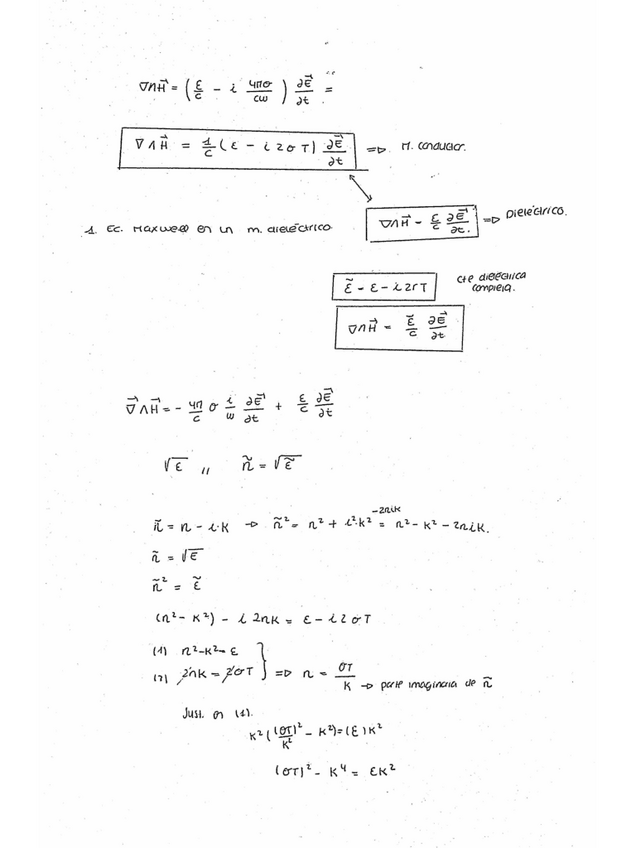 ∇∧H⃗ = (ε/c - i 4πσ/cω) ∂E⃗/∂t =
∇∧H⃗ = 1/c (ε - i2σT) ∂E⃗/∂t => M. conductor.
1. Ec. Maxwell en un m. dieléctrico ∇∧H⃗ - ε/c ∂E⃗/∂t. => Dieléctrico.
ε̃ - ε - i2σT cte dieléctrica compleja.
∇∧H⃗ = ε̃/c ∂E⃗/∂t
∇⃗∧H⃗ = - 4π/c σ i/ω ∂E⃗/∂t + ε/c ∂E⃗/∂t
√ε ,, ñ = √ε̃
ñ = n - i·k → ñ² = n² + i²k² -2nik = n² - k² - 2nik.
ñ = √ε
ñ² = ε̃
(n² - k²) - i 2nk = ε - i2σT
(1) n²-k² = ε
(2) 2nk = 2σT } => n = σT/k → parte imaginaria de ñ
Sust. en (1).
k² ((σT)²/k² - k²) = (ε)k²
(σT)² - k⁴ = εk²